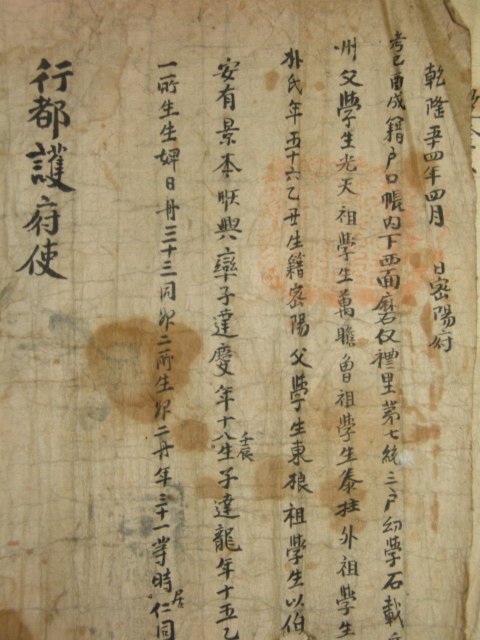 乾隆五十四年四月 日密陽府
考己酉成籍戶口帳內下西面禮里第七統三戶幼學石載
州父學生光天祖學生萬瞻曾祖學生泰柱外祖學生
朴氏年五十六乙丑生籍密陽父學生東祖學生以伯
安有景本順興率子達慶年十八壬辰生子達龍年十五乙
一所生生婢日丹三十三同婢二所生婢二丹年三十一等時居仁同
行都護府使